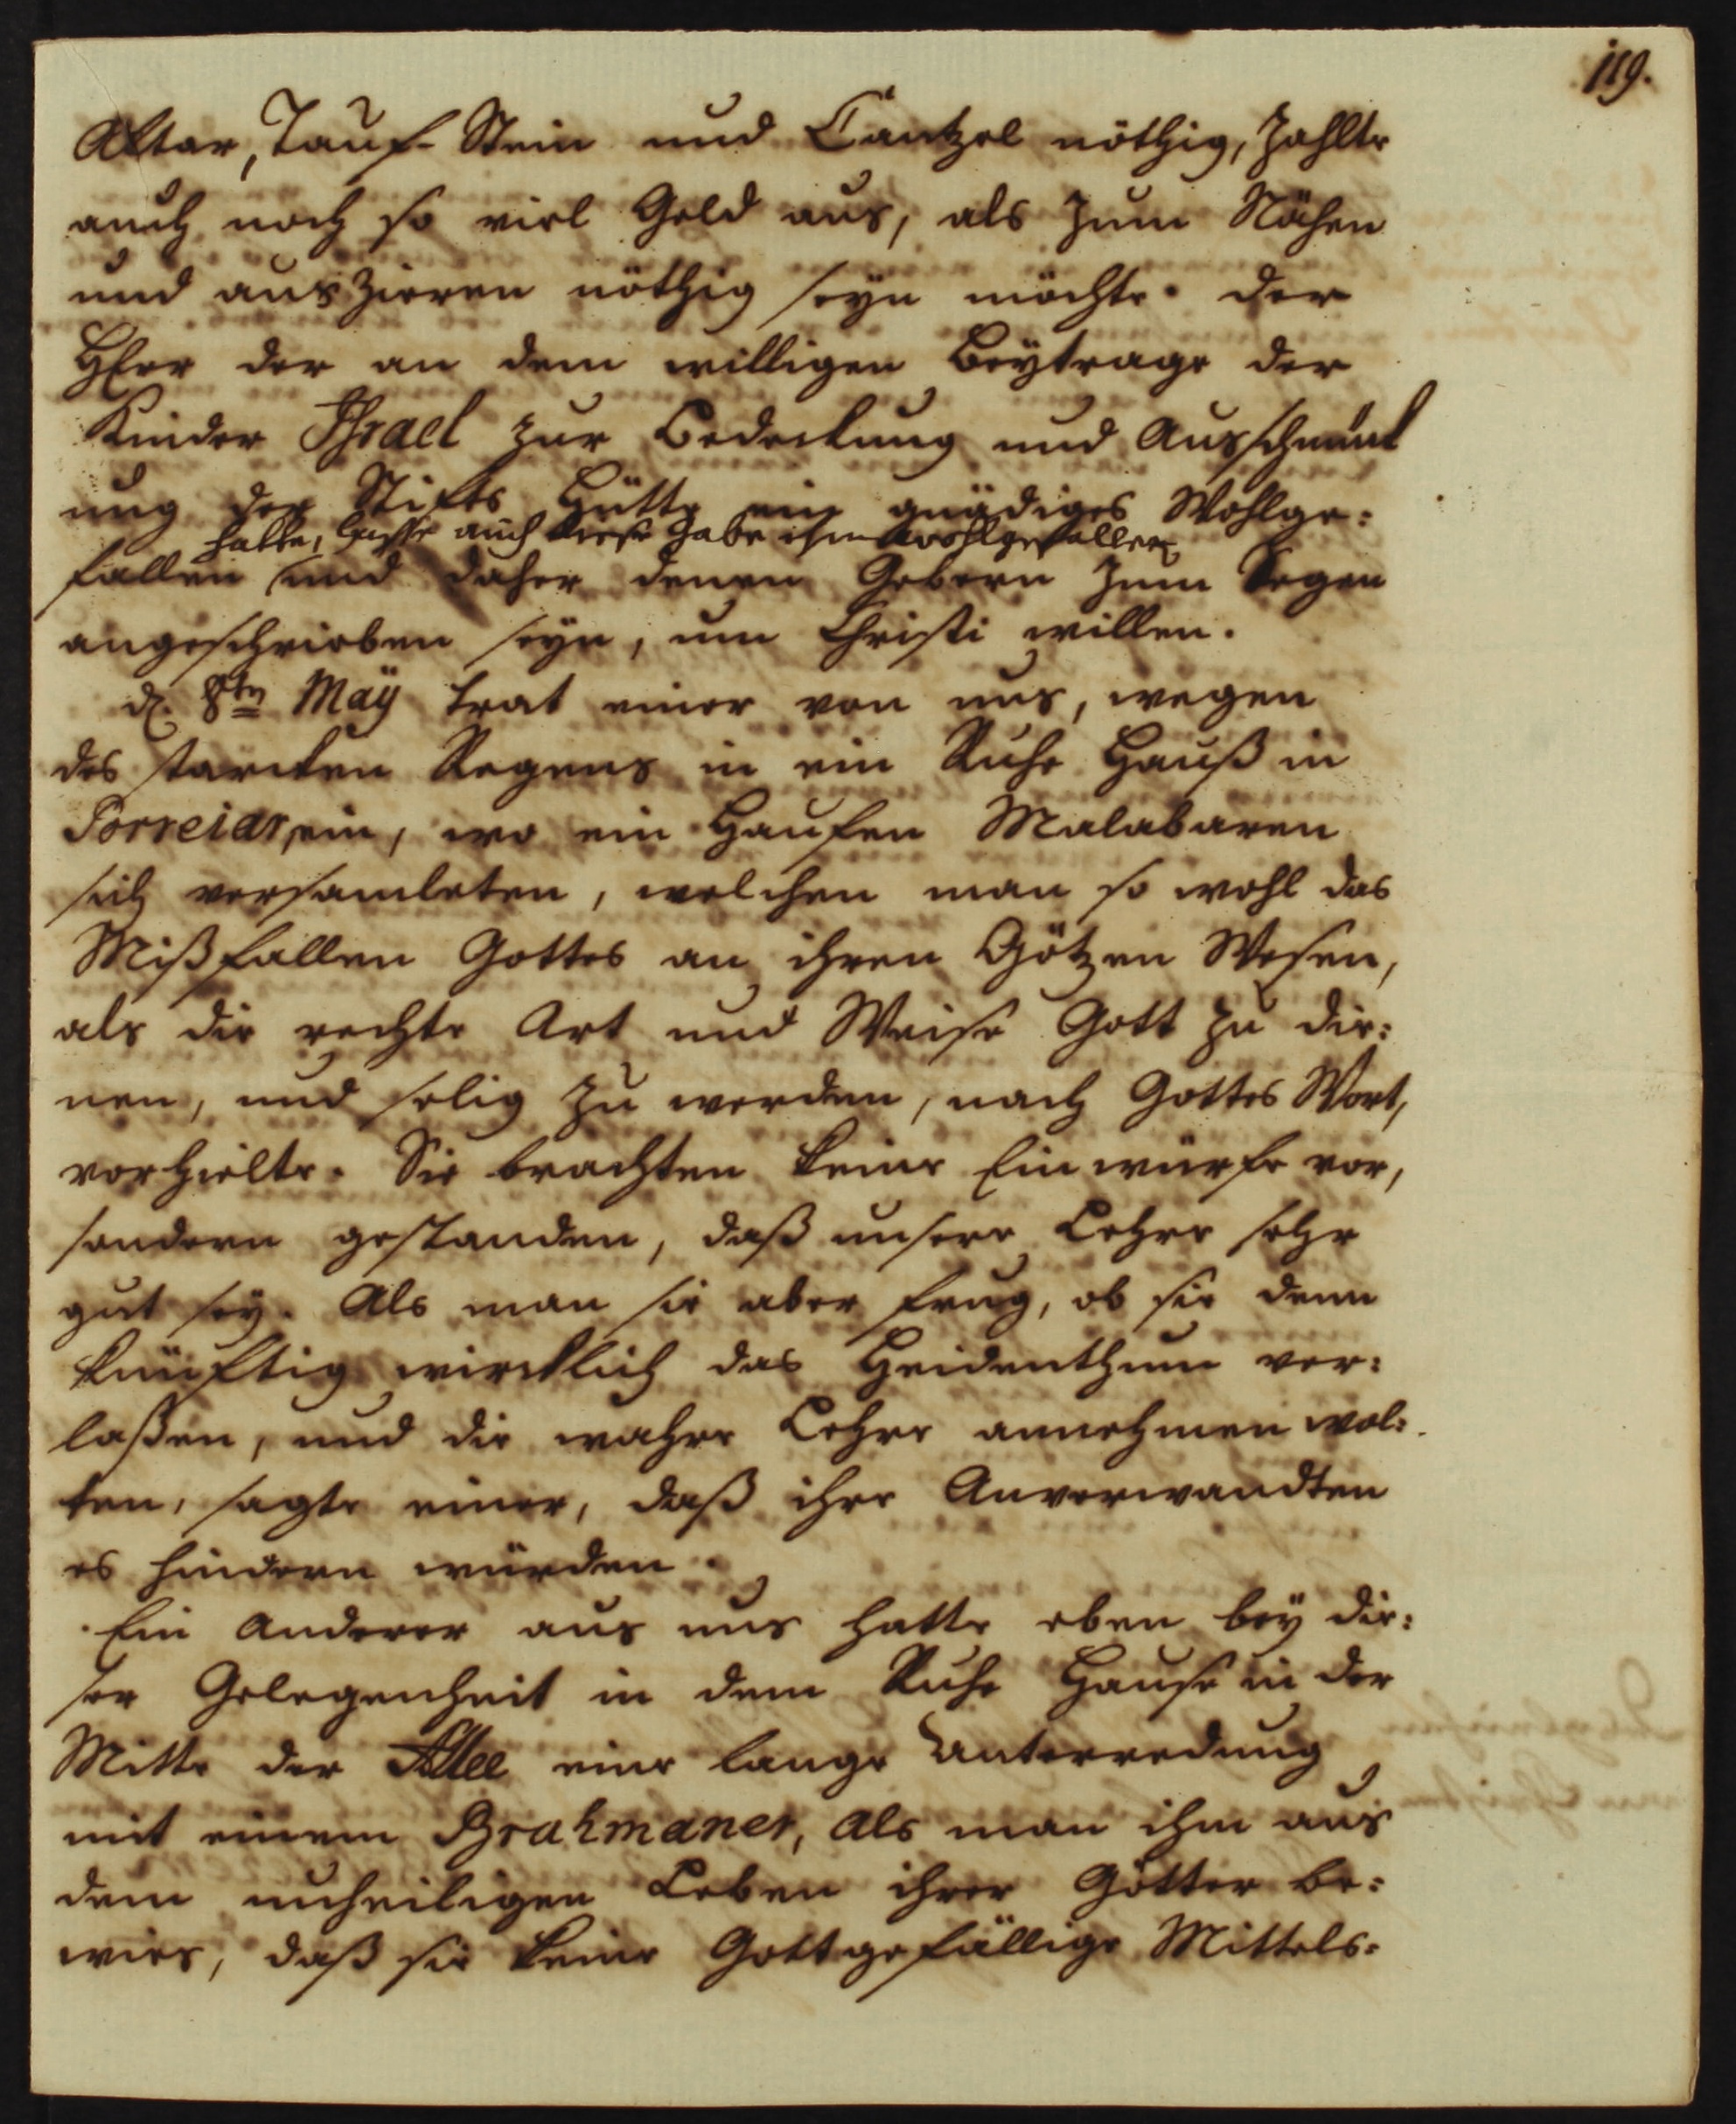 119.
Altar, Tauf-Stein und Cantzel nöthig, zahlte
auch noch so viel Geld aus, als zum Nähen
und auszieren nöthig seyn möchte. Der
HErr der an dem willigen Beytrage der
Kinder Israel zur Bedeckung und Ausschmück
ung der Stifts Hütte ein gnädiges Wohlge:
hatte, lasse auch diese Gabe ihm wohlgefallen
fallen und daher denen Gebern zum Segen
angeschrieben seyn, um Christi willen.
d. 8ten May trat einer von uns, wegen
des starcken Regens in ein Ruhe Hauß in
Porreiar, ein, wo ein Haufen Malabaren
sich versamleten, welchen man so wohl das
Mißfallen Gottes an ihren Götzen Wesen,
als die rechte Art und Weise Gott zu die:
nen, und selig zu werden, nach Gottes Wort,
vorhielte. Sie brachten keine Einwürfe vor,
sondern gestanden, daß unsere Lehre sehr
gut sey. Als man sie aber frug, ob sie denn
künftig wircklich das Heidenthum ver:
laßen, und die wahre Lehre annehmen wol:
ten, sagte einer, daß ihre Anverwandten
es hindern würden.
Ein Anderer aus uns hatte eben bey die:
ser Gelegenheit in dem Ruhe Hause in der
Mitte der Allee eine lange Unterredung
mit einem Brahmaner, Als man ihm aus
dem unheiligen Leben ihrer Götter be:
wies, daß sie keine Gottgefällige Mittels: